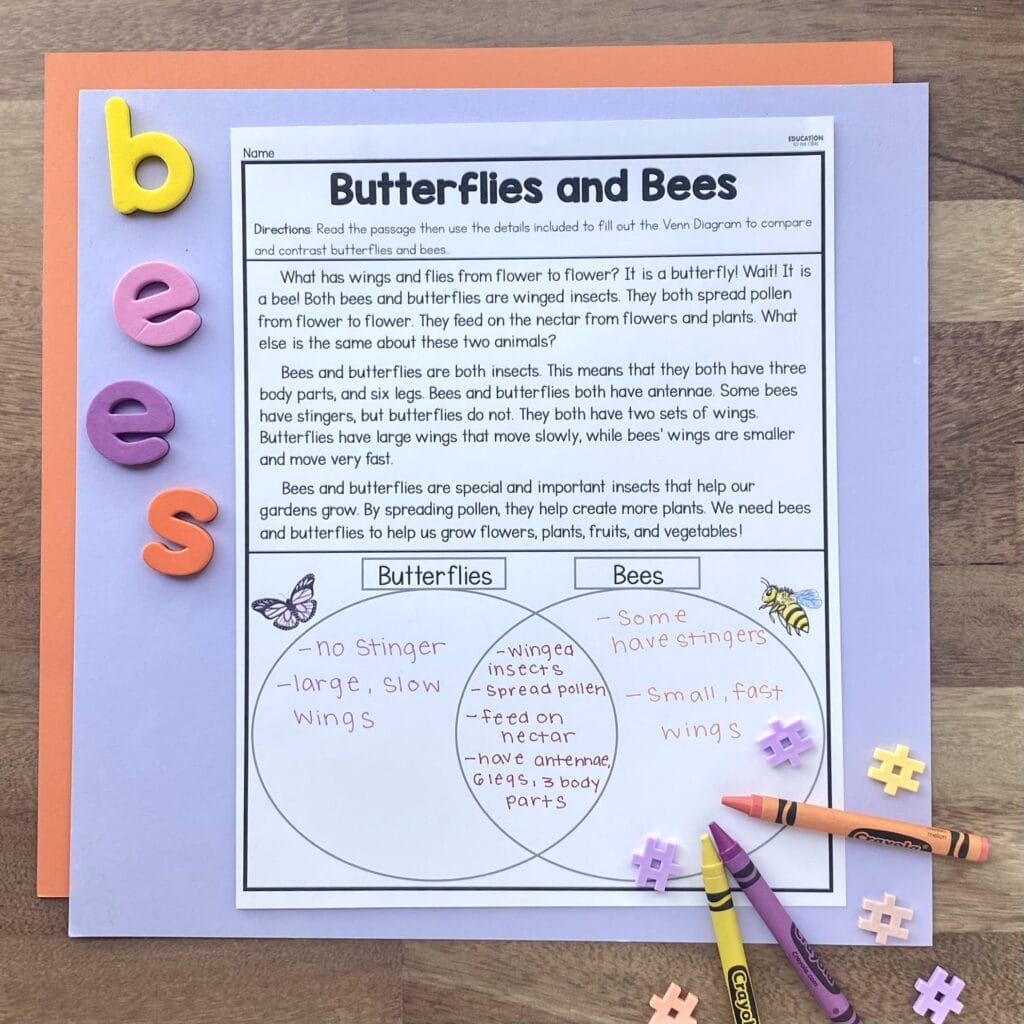 bees
Name
EDUCATION
TO THE CORE
Butterflies and Bees
Directions: Read the passage then use the details included to fill out the Venn Diagram to compare
and contrast butterflies and bees..
What has wings and flies from flower to flower? It is a butterfly! Wait! It is
a bee! Both bees and butterflies are winged insects. They both spread pollen
from flower to flower. They feed on the nectar from flowers and plants. What
else is the same about these two animals?
Bees and butterflies are both insects. This means that they both have three
body parts, and six legs. Bees and butterflies both have antennae. Some bees
have stingers, but butterflies do not. They both have two sets of wings.
Butterflies have large wings that move slowly, while bees' wings are smaller
and move very fast.
Bees and butterflies are special and important insects that help our
gardens grow. By spreading pollen, they help create more plants. We need bees
and butterflies to help us grow flowers, plants, fruits, and vegetables!
Butterflies
- no stinger
- large, slow
wings
- winged
insects
- spread pollen
- feed on
nectar
- have antennae,
6 legs, 3 body
parts
Bees
- Some
have stingers
- Small, fast
wings
melon
Crayola
Crayola
Crayola